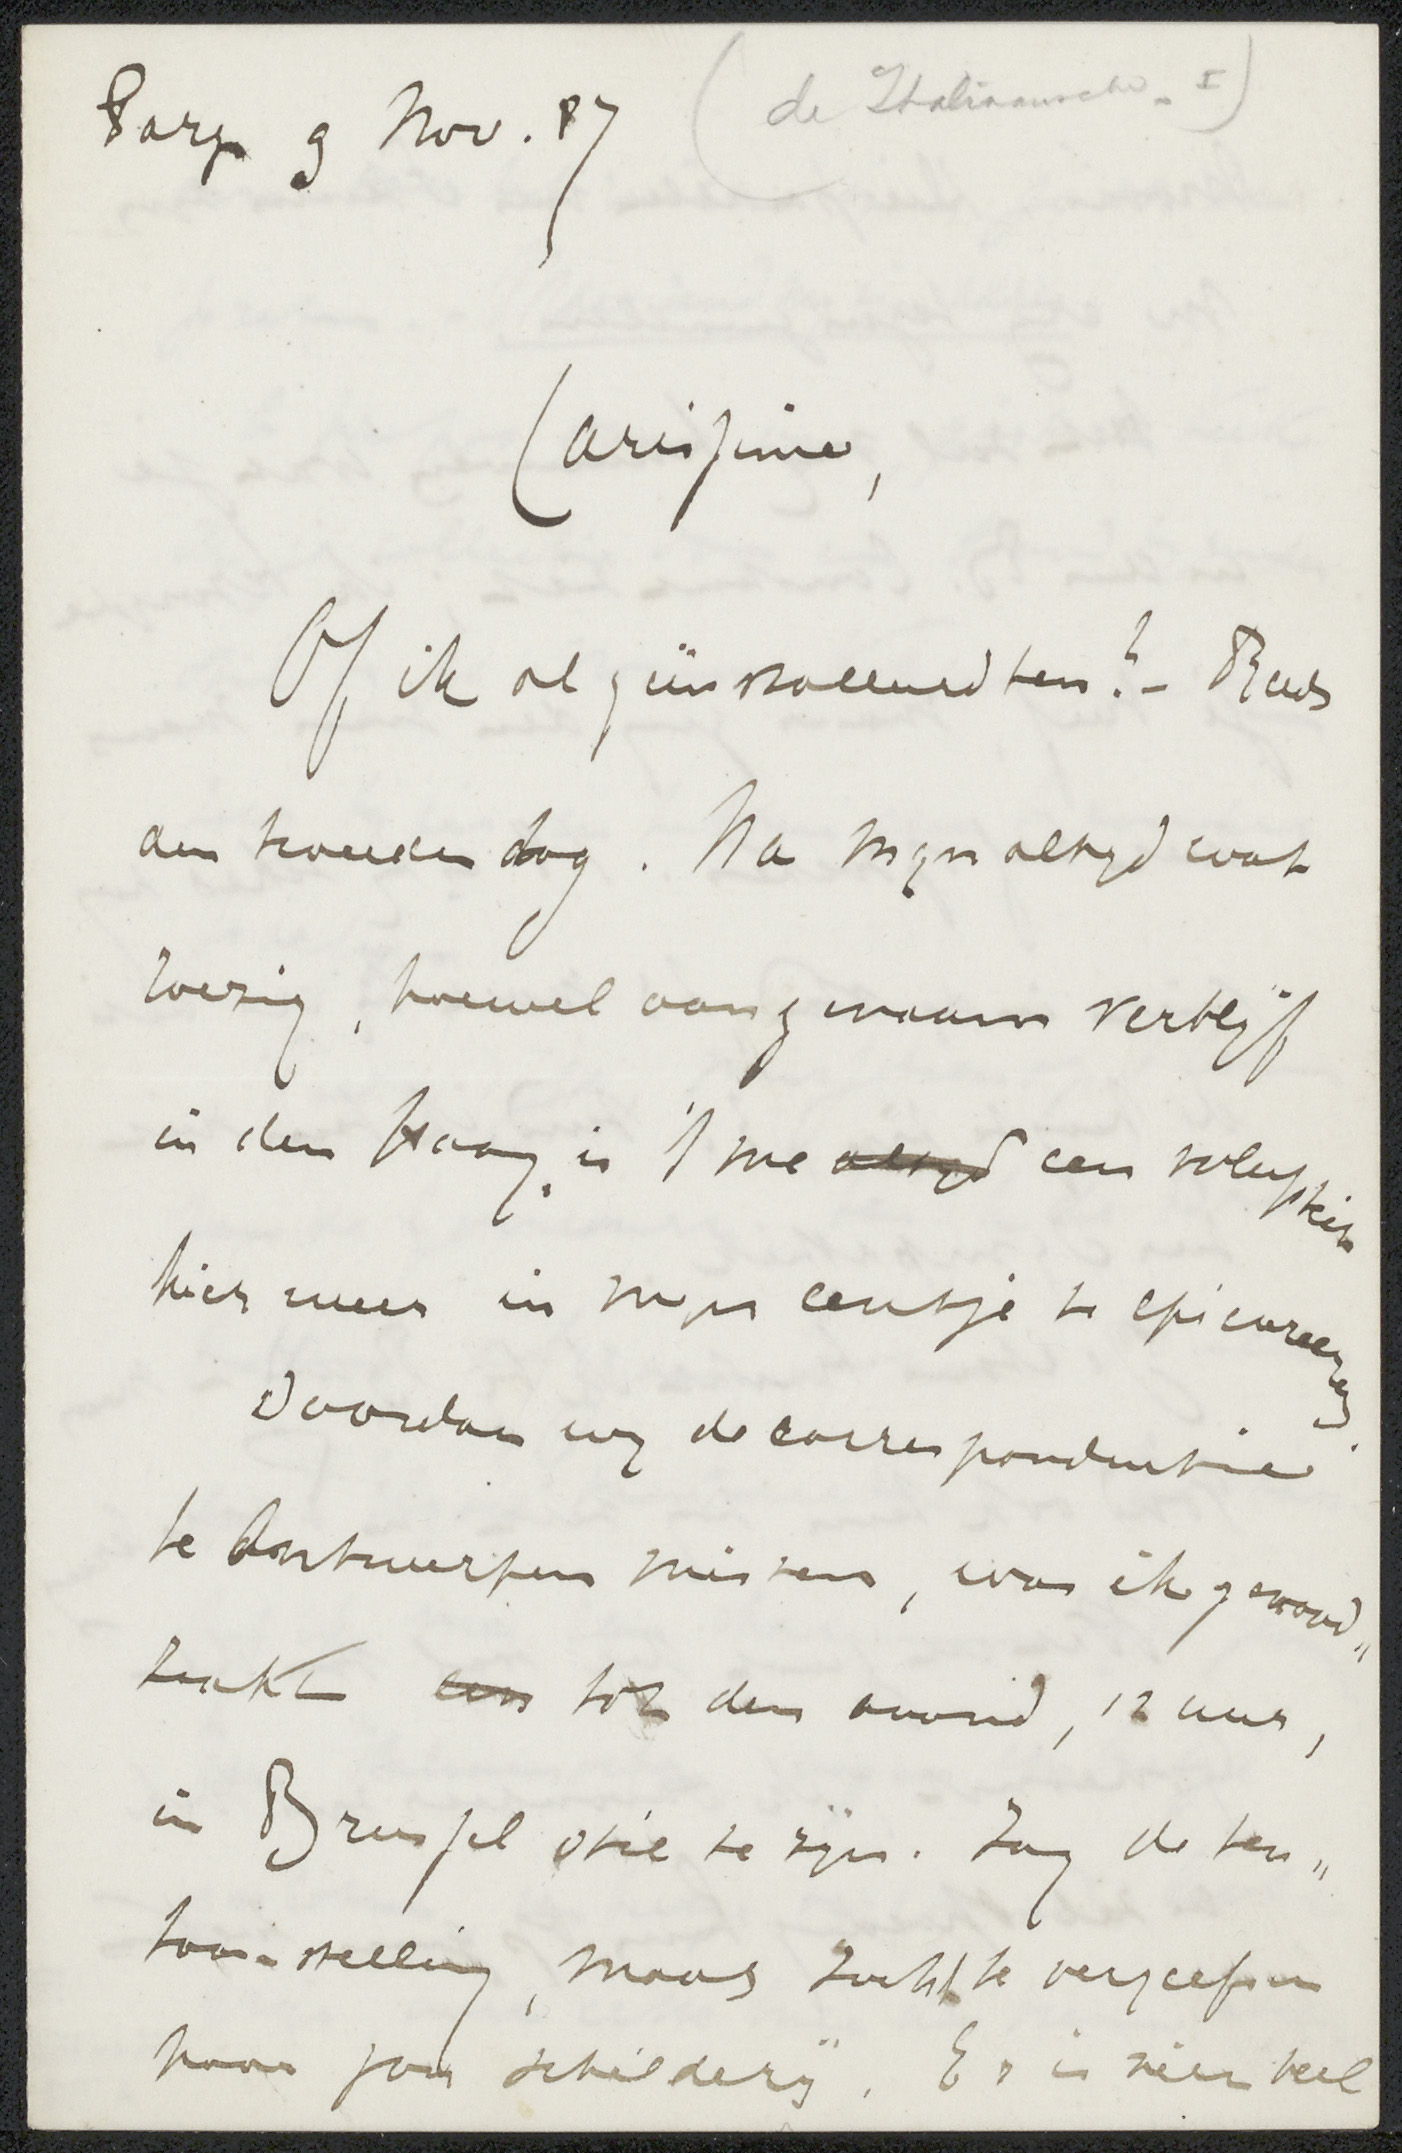 Parys 9 Nov. 87 (de Italiaansche - I)
Carissime,
Of ik al geïnstalleerd ben? - Reeds
den tweeden dag. Na myn altyd wat
roezig, hoewel aangenaam verblijf
in den Haag, is 't me altyd een volupteit
hier weer in myn eentje te epicureeren.
Doordan wy de correspondentie
te Antwerpen misten, was ik genood„
zaakt een tot den avond, 12 uur,
in Brussel stil te zijn. Zag de ten„
toon-stelling, maar zocht te vergeefsch
naar jou schilderij. Er is niet veel